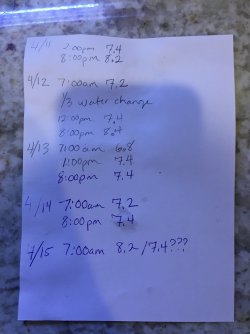 4/11 2:00pm 7.4
8:00pm 8.2
4/12 7:00am 7.2
1/3 water change
12:00pm 7.4
8:00pm 8.4
4/13 7:00am 6.8
1:00pm 7.4
8:00pm 7.4
4/14 7:00am 7.2
8:00pm 7.4
4/15 7:00am 8.2/7.4???